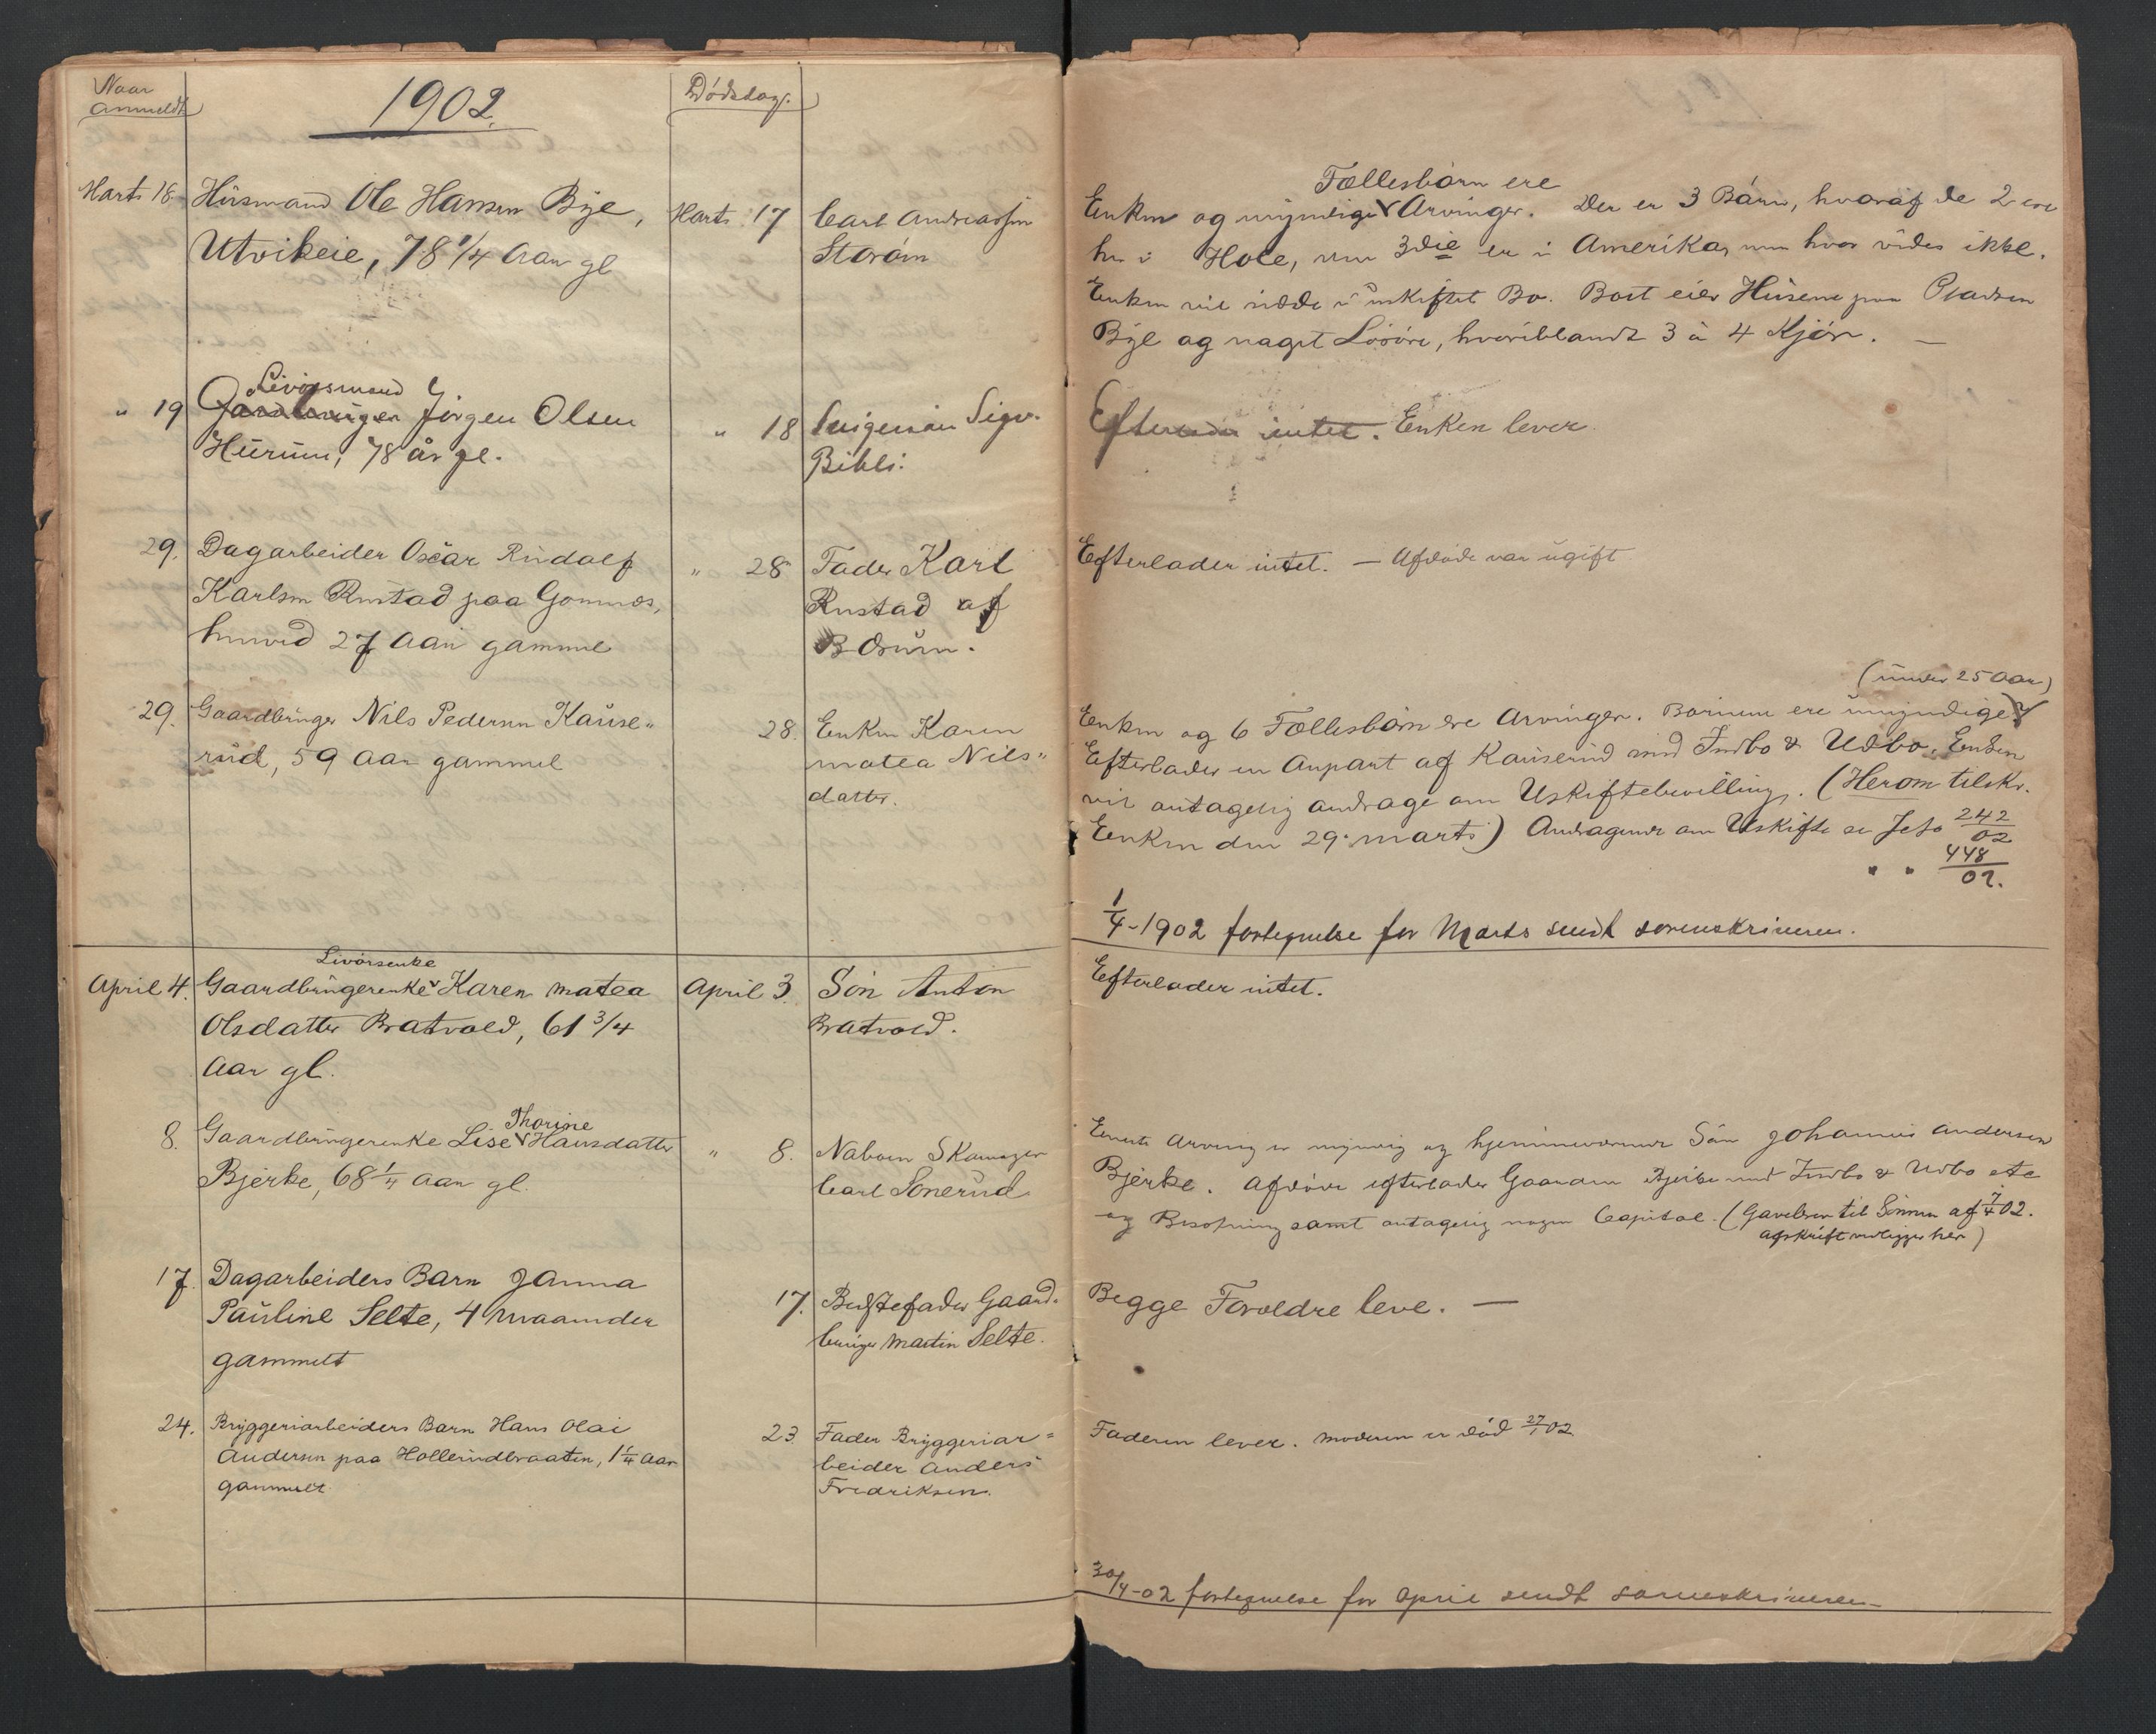 Naar
anmeldt
1902.
Dødsdag.
Marts 18
Husmand Ole Hansen Bye,
Utvikeie, 78 1/4 Aar gl
Marts 17
Carl Andreassen
Storøen
Fællesbørn ere
Enken og myndige Arvinger. Der er 3 Børn, hvoraf de 2 ere
her i Hole, men 3die er i Amerika, men hvor vides ikke.
Enken vil sidde i uskiftet Bo. Boet eier Husene paa Pladsen
Bye og noget Løsøre, hvoriblandt 3 à 4 Kjør. —
" 19
Livørsmand
Gaardbruger Jørgen Olsen
Hurum, 78 år gl.
" 18
Sigv.
Bihli.
Efterlader intet. Enken lever
29.
Dagarbeider Oscar Rudolf
Karlsen Rustad paa Gomnæs,
henved 27 Aar gammel
" 28
Fader Karl
Rustad af
Bærum.
Efterlader intet. — Afdøde var ugift
29.
Gaardbruger Nils Pedersen Kause-
rud, 59 Aar gammel
28.
Enken Karen
Matea Nils-
datter.
(under 25 Aar)
Enken og 6 Fællesbørn ere Arvinger. Børnene ere umyndige
Efterlader en Anpart af Kauserud med Indbo & Udbo. Enken
vil antagelig andrage om Uskiftebevilling. (Herom tilskr.
Enken den 29. marts) Andragende om Uskifte se Jr. 242/02
" " 448/02.
1/4-1902 fortegnelse for Marts sendt sorenskriveren.
April 4.
Livørsenke
Gaardbrugerenke Karen Matea
Olsdatter Bratvold, 61 3/4
Aar gl.
April 3.
Søn Anton
Bratvold.
Efterlader intet.
8.
Thorine
Gaardbrugerenke Lise Hansdatter
Bjerke, 68 1/4 Aar gl.
" 8.
Naboen Skomager
Carl Sonerud
Eneste Arving er myndig og hjemmeværende Søn Johannes Andersen
Bjerke. Afdøde efterlader Gaarden Bjerke med Indbo & Udbo etc
og Besætning samt antagelig nogen Capital. (Gavebrev til Sønnen af 7/4 02.
afskrift vedligger her)
17.
Dagarbeiders Barn Janna
Pauline Selte, 4 Maaneder
gammelt
17.
Bedstefader Gaard-
bruger Martin Selte.
Begge Forældre leve. —
24.
Bryggeriarbeiders Barn Hans Olai
Andersen paa Hollerudbraaten, 1 1/4 Aar
gammelt
23.
Fader Bryggeriar-
beider Anders
Fredriksen.
Faderen lever. Moderen er død 02
30/4-02 fortegnelse for April sendt sorenskriveren